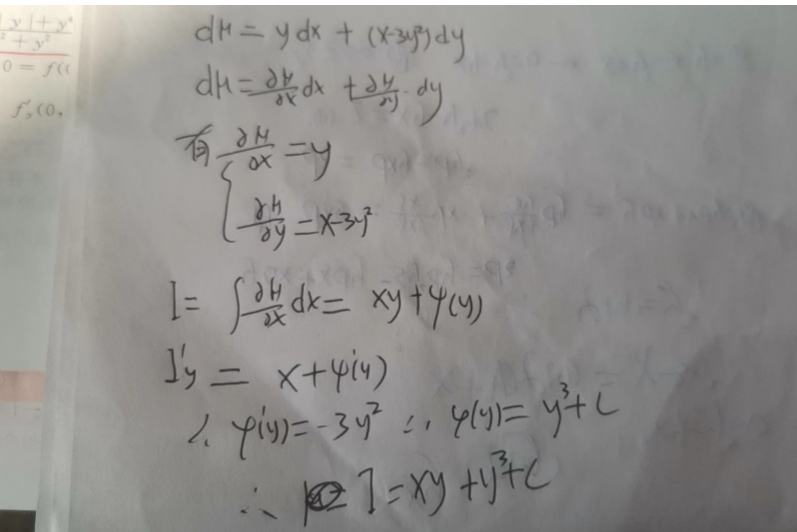 |y|+y⁴
²+y²
0 = f((
f'ₓ(0,
dM = y dx + (x-3y²)dy
dM = ∂M/∂x dx + ∂M/∂y · dy
有 { ∂M/∂x = y
∂M/∂y = x-3y²
I = ∫ ∂M/∂x dx = xy + φ(y)
I'y = x + φ'(y)
∴ φ'(y) = -3y² ∴ φ(y) = y³ + C
∴ I = xy + y³ + C